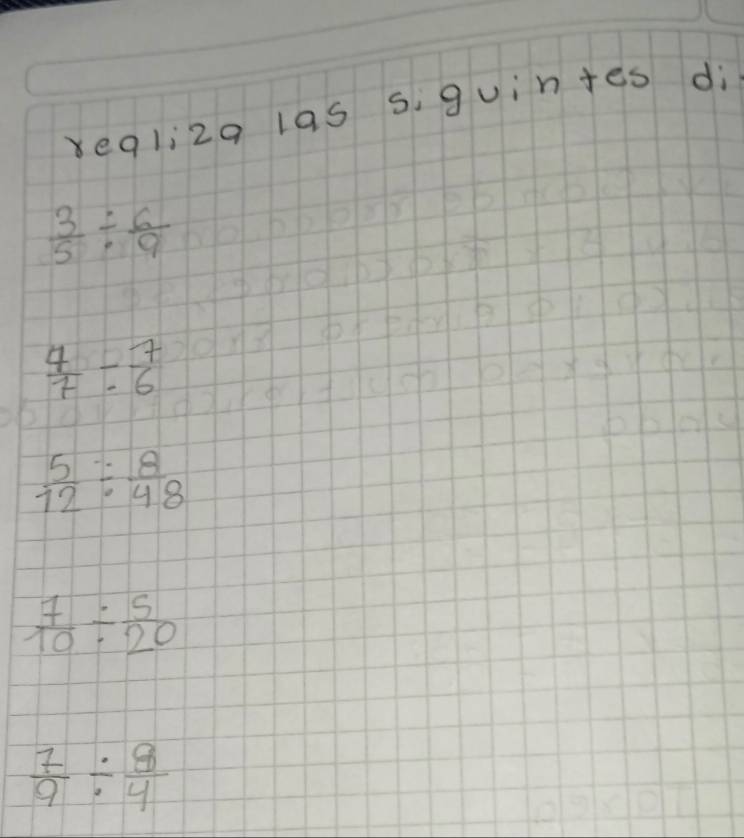 realiza las siguintes di
3/5 ÷ 6/9
4/7 ÷ 7/6
5/12 ÷ 8/48
7/10 ÷ 5/20
7/9 ÷ 8/4